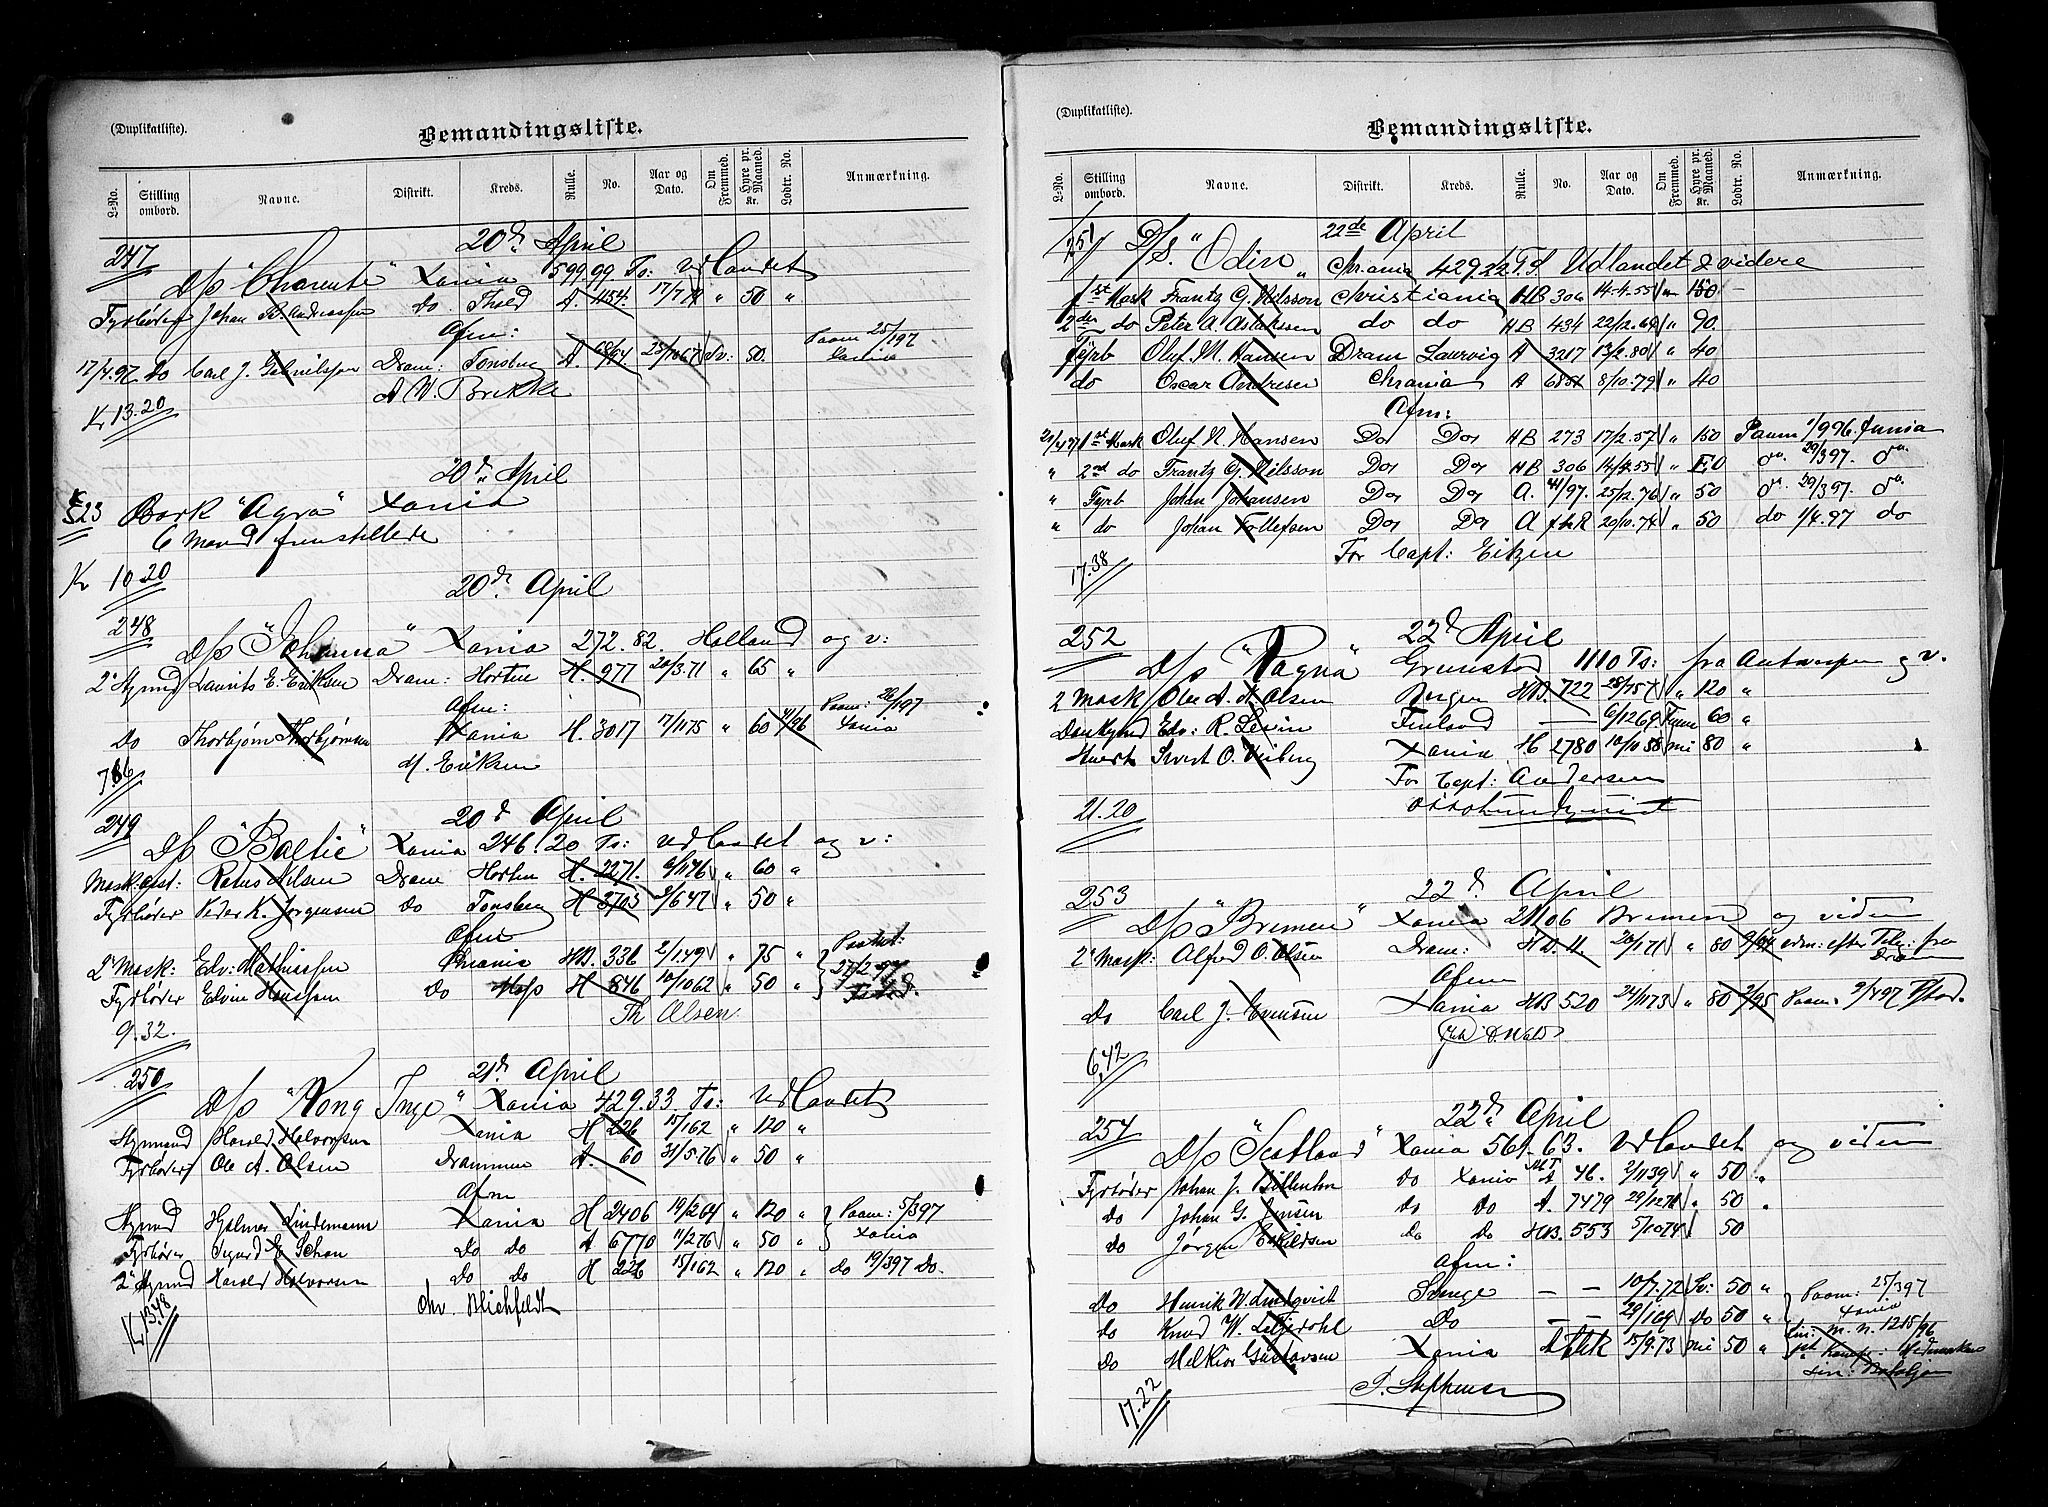 (Duplikatliste).
Bemandingsliste.
L-No. Stilling ombord. Navne. Distrikt. Kreds. Rulle. No. Aar og Dato. Om Fremmed. Hyre pr. Maaned. Kr. Lodtr. No. Anmærkning.
247 20d April
D/S "Charente" Xania 599.99 Ts: Udlandet
Fyrbøder Johan B. Andreassen do A. 1134. 17/7 " 50 "
Afm:
17/4.97 Do Carl J. Gabrielsen Dram: Tønsberg A. 68/94 25/1067 50. Paam 25/197
A. M. Brekke Xania
Kr 13.20
20d April
523 Bark "Agra" Xania
6 Mand fremstillede
Kr 10.20
20d April
248
D/S "Johanna" Xania 272.82. Holland og v:
2' Stymd Laurits E. Eriksen Dram: Horten H. 977 20/3.71 " 65 "
Afm: Paam: 26/197
Do Thorbjørn Thorbjørnsen Xania H. 3017 17/1175 " 60 4/96 Xania
M. Eriksen
7.86
20d April
249
D/S "Baltic" Xania 246.20 Ts: Udlandet og v:
Mask: asst: Rasmus Nilsen Dram Horten H. 2271. 6/1176 " 60 "
Fyrbøder Peder K. Jørgensen Do Tønsberg H 3703 2/647 " 50 "
Afm
2' Mask: Edv: Mathissen Chrania HB. 336 2/149 " 75 "
Fyrbøder Edvin Hanssen Do Moss H 846 10/1062 " 50 " 27/2 97
Th Olsen
9.32.
250 21d April
D/S "Kong Inge" Xania 429.33 Ts: Udlandet
Stymand Harald Halvorsen Xania H 226 15/162 " 120 "
Fyrbøder Ole A. Olsen Drammen A. 60 31/5.76 " 50 "
Afm
Stymd Hjalmar Lindemann Xania H 2406 19/264 " 120 " Paam: 5/397
Fyrbøder Sigurd E. Schau Do do A 6770 11/276 " 50 " Xania
2' Stymd Harald Halvorsen Do do H 226 15/162 " 120 " do 19/397 Do.
Chr. Blichfeldt
Kr 13.48
(Duplikatliste).
Bemandingsliste.
L-No. Stilling ombord. Navne. Distrikt. Kreds. Rulle. No. Aar og Dato. Om Fremmed. Hyre pr. Maaned. Kr. Lodtr. No. Anmærkning.
251 22de April
D/S. "Odin" Chrania 429.22 T.S Udlandet & videre
1st Mask Frantz G. Nilsson Christiania HB 306 14-4.55 " 150 -
2den do Peter A. Aslaksen do do HB 434 22/12.64 " 90.
Fyrb Oluf. M. Hansen Dram Laurvig A 3217 13/2.80 " 40
do Oscar Andresen Chrania A 6851 8/10.79 " 40
Afm:
21/497 1st Mask Oluf N. Hansen Do Do HB 273 17/2.57 " 150 Paam 1/996. Xania
" 2nd do Frantz G. Nilsson Do Do HB 306 14/4.55 " 80 do. 29/397. do.
" Fyrb Johan Johansen Do Do A. 41/97. 25/2.76 " 50 do. 29/397. do.
" do Johan Tollefsen Do Do A f.h.R 20/10.74 " 50 do 1/4.97 do
For Capt: Eitzen
17.38
252 22d April
D/S "Ragna" Grimstad 1110 Ts: fra Antwerpen og v.
2 Mask Ole A. A. Olsen Bergen HB. 722 " 120 "
Donkymd Edv: R. Levin Finland — 6/1269. 60 "
Hovm Sivert O. Viiberg Xania H 2780 10/10 58 nei 80 "
For Capt: Andersen
21.20
253 22d April
D/S "Bremen" Xania 21106 Bremen og viden
2' Mask: Alfred O. Olsen Dram: HB. 11 20/171 " 80 efter Telg: fra Dram
Afm
Do Carl J. Evensen Xania HB 520 24/1173 " 80 2/95 Paam. 2/497 Fstad.
6.42
254 22d April
D/S "Scotland" Xania 561.63. Udlandet og viden
Fyrbøder Johan J. do Xania A 46. 2/1139 " 50 "
do Johan G. Jensen do Do A. 7479 29/1278 " 50 "
do Jørgen Eskildsen do Do HB. 553 5/1074 50
Afm:
Do Henrik W. Lindqvist Sverige — — 10/7.72 Sv: 50 " Paam: 25/397
do Knud W. Liljedahl Do — — 29/169 Do 50 " Xania
Do Melkior Gustavsen Xania A 15/9.73 nei 50 " m. n. 1215/96
17.22